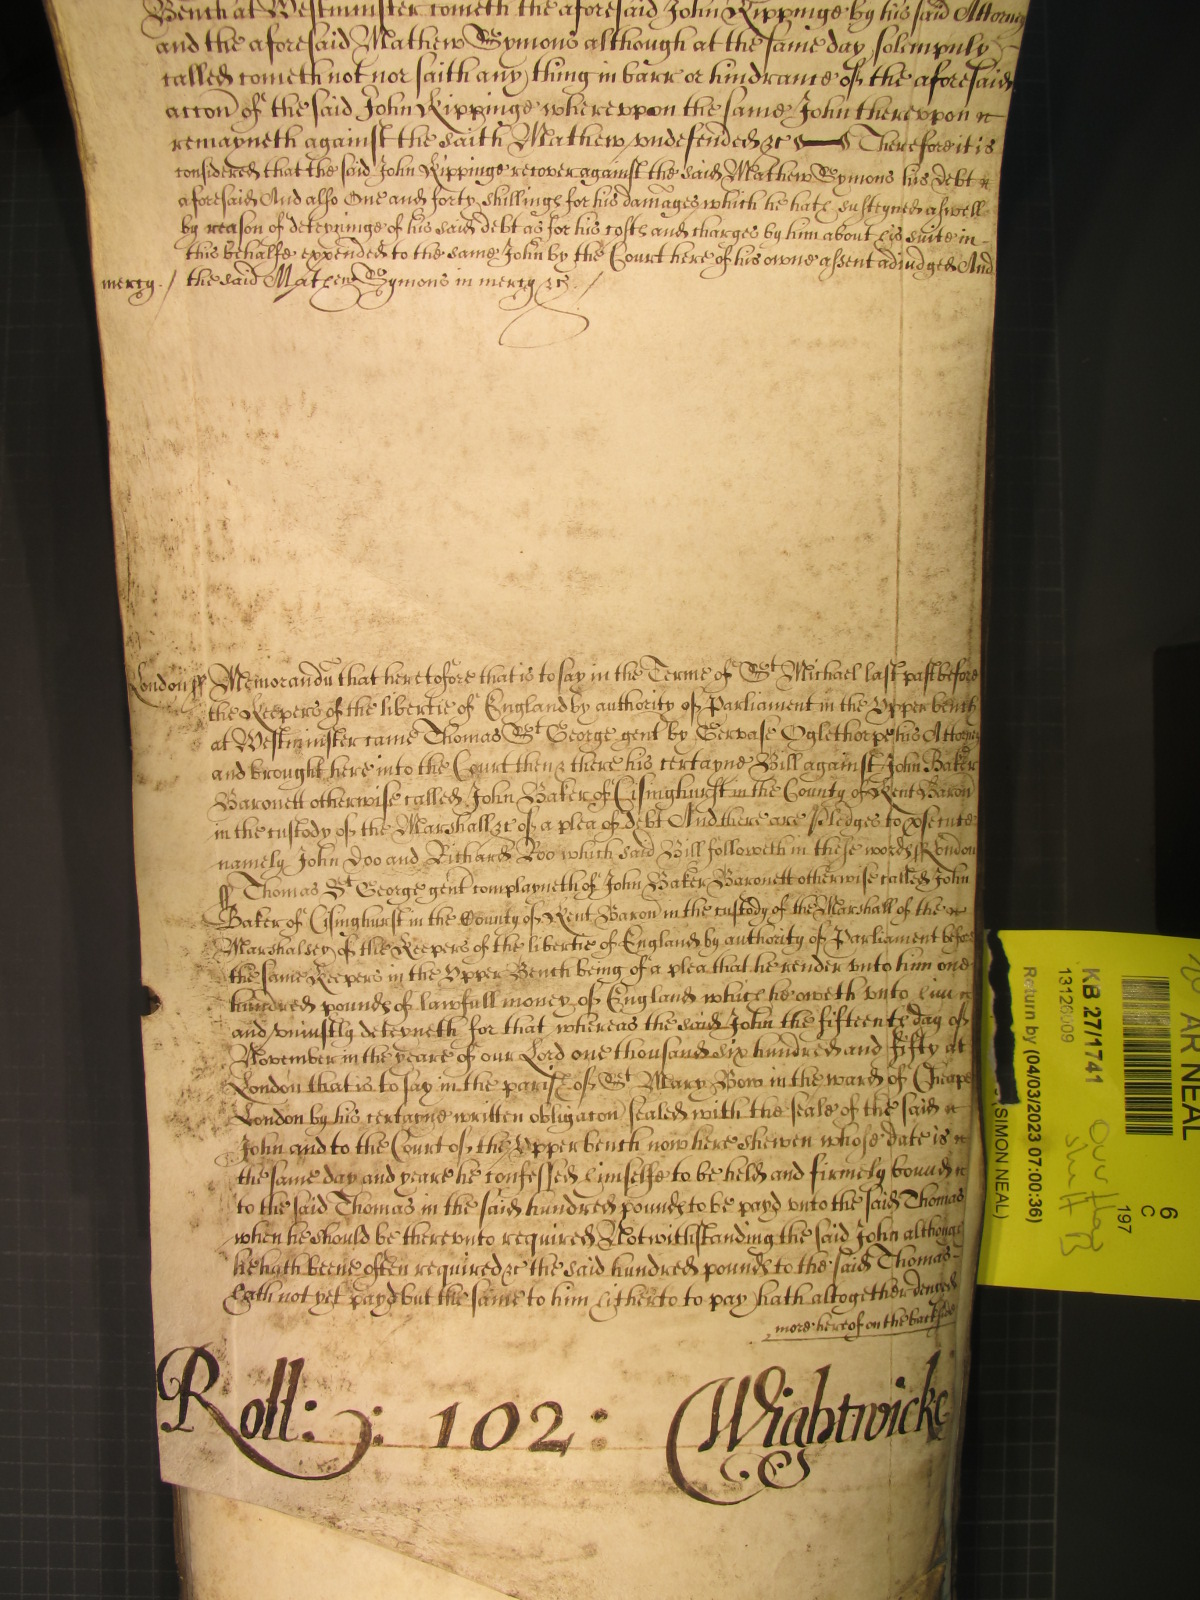 Bench at Westminster cometh the aforesaid John Kippinge by his said Attorney
and the aforesaid Mathew Symons although at the same day solempnly
called cometh not nor saith any thing in barr or hindrance of the aforesaid
accon of the said John Kippinge whereupon the same John thereupon
remayneth against the saith Mathew undefended &c Therefore it is
considered that the said John Kippinge recover against the said Mathew Symons his debt
aforesaid And also One and forty shillings for his damages which he hath susteyned aswell
by reason of deteyninge of his said debt as for his costs and charges by him about his suite in
this behalfe expended to the same John by the Court here of his owne assent adiudged And
mercy / the said Mathew Symons in mercy &c /
London ss Memorandu that heretofore that is to say in the Terme of St Michael last past before
the Keepers of the libertie of England by authority of Parliament in the Upper bench
at Westminster came Thomas St George gent by Gervase Oglethorpe his Attorney
and brought here into the Court then & there his certayne Bill against John Baker
Baronett otherwise called John Baker of Cisinghurst in the County of Kent Baron
in the custody of the Marshall &c of a plea of debt And there are pledges to psecute
namely John Doo and Richard Roo which said Bill followeth in these words ss London
ss Thomas St George gent complayneth of John Baker Baronett otherwise called John
Baker of Cisinghurst in the County of Kent Baron in the custody of the Marshall of the
Marshalsey of the Keepers of the libertie of England by authority of Parliament before
the same Keepers in the Upper Bench being of a plea that he render unto him one
hundred pounds of lawfull money of England which he oweth unto him
and uniustly deteyneth for that whereas the said John the fifteenth day of
November in the yeare of our Lord one thousand six hundred and fifty at
London that is to say in the parish of St Mary Bow in the ward of Cheape
London by his certayne written obligacon sealed with the seale of the said
John and to the Court of the Upper bench now here shewen whose date is
the same day and yeare he confessed himselfe to be held and firmely bound
to the said Thomas in the said hundred pounds to be payd unto the said Thomas
when he should be thereunto required Notwithstanding the said John although
he hath beene often required &c the said hundred pounds to the said Thomas
hath not yet payd but the same to him hitherto to pay hath altogether denyed
more hereof on the backside
Roll: : 102 : Wightwicke
AR NEAL
6
C
197
KB 27/1741
13126009
Return by (04/03/2023 07:00:36)
(SIMON NEAL)